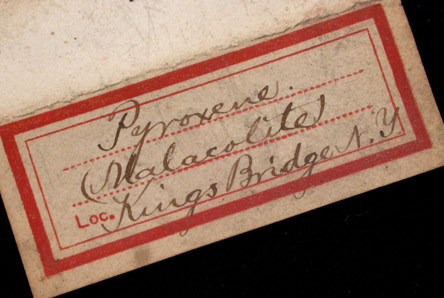 Pyroxene.
(Malacolite)
Loc. Kings Bridge N.Y